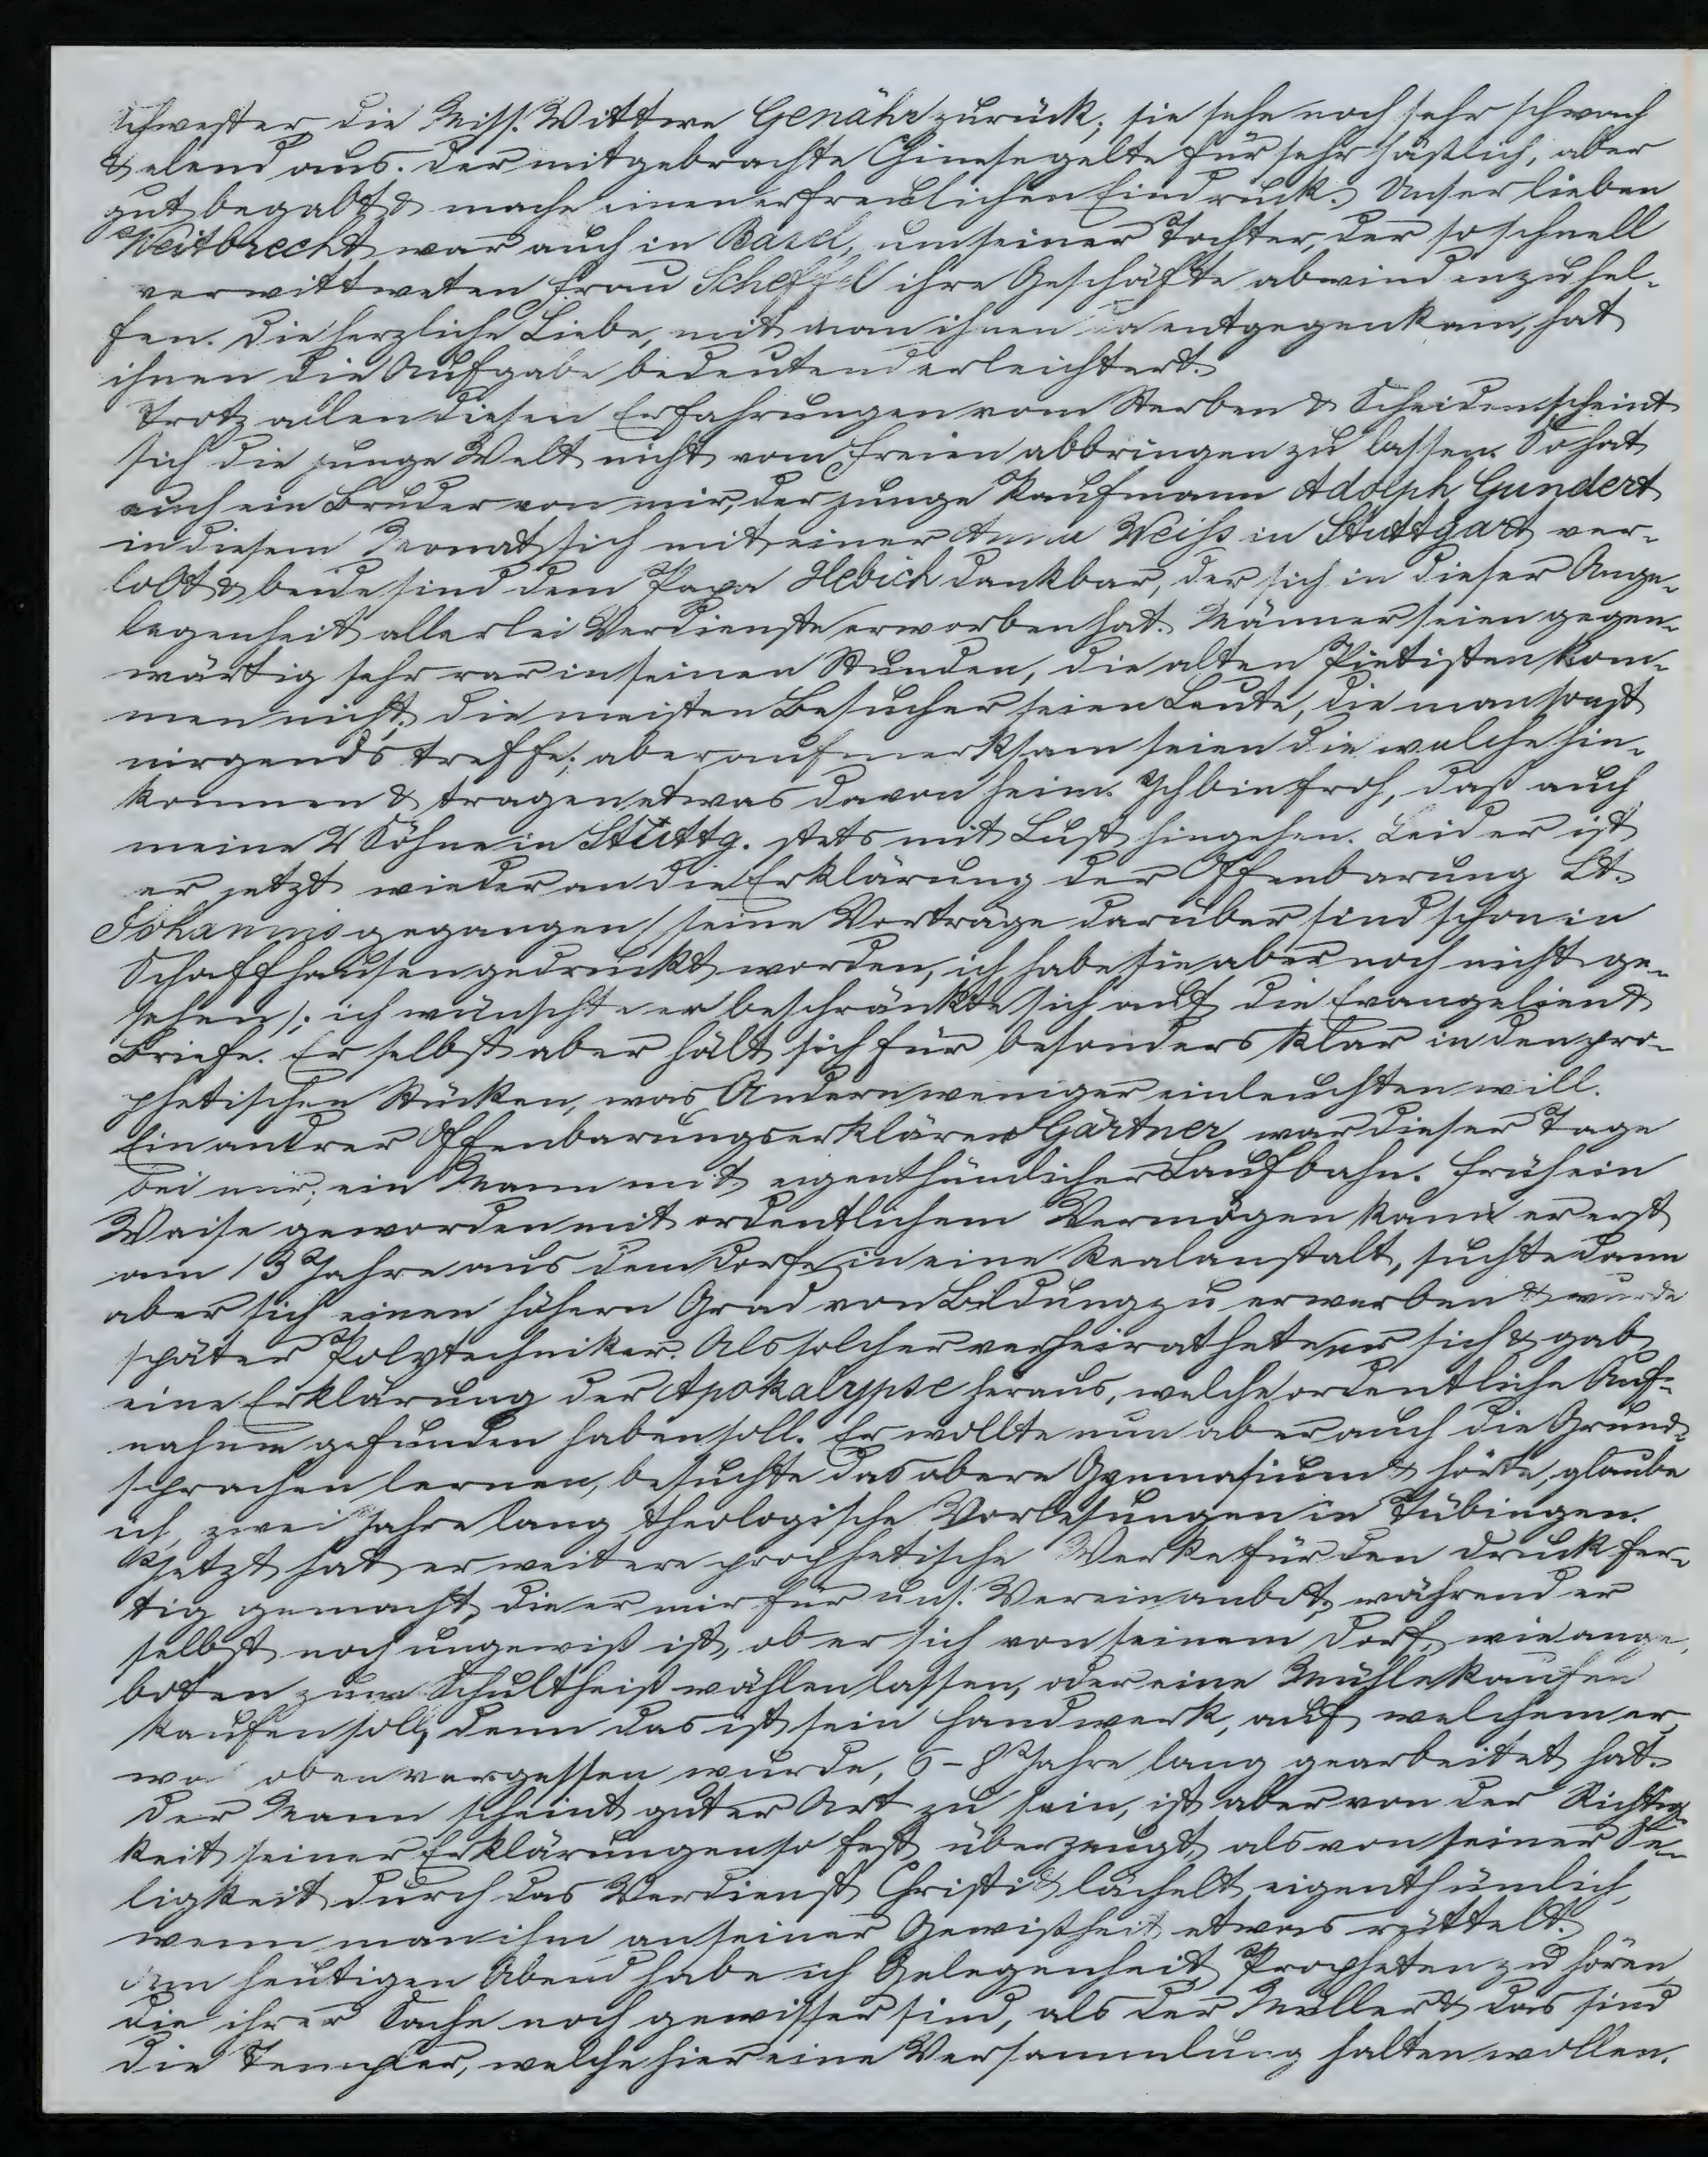 Schwester, die Miss. Wittwe Genähr zurück; sie sehe noch sehr schwach
& elend aus. Der mitgebrachte Chinese gelte für sehr häßlich, aber
gut begabt & mache einen erfreulichen Eindruck. Unser lieben
Weitbrecht war auch in Basel, um seiner Tochter, der so schnell
verwittweten Frau Scheffel ihre Geschäfte abwinden zu hel-
fen. Die herzliche Liebe, mit man ihnen da entgegenkam, hat
ihnen die Aufgabe bedeutend erleichtert.
Trotz allen diesen Erfahrungen vom Sterben & Scheiden scheint
sich die junge Welt nicht vom Freien abbringen zu lassen. So hat
auch ein Bruder von mir, der junge Kaufmann Adolph Gundert
in diesem Monat sich mit einer Anna Weiss in Stuttgart ver-
lobt & beide sind dem Papa Hebich dankbar, der sich in dieser Ange-
legenheit allerlei Verdienste erworben hat. Männer seien gegen-
wärtig sehr rar in seinen Stunden, die alten Pietisten kom-
men nicht; die meisten Besucher seien Leute, die man sonst
nirgends treffe; aber aufmerksam seien die welche hin-
kommen & tragen etwas davon heim. Ich bin froh, daß auch
meine 2 Söhne in Stuttg. stets mit Lust hingehen. Leider ist
er jetzt wieder an die Erklärung der Offenbarung St.
Johannis gegangen (seine Vorträge darüber sind schon in
Schaffhausen gedruckt worden, ich habe sie aber noch nicht ge-
sehen); ich wünschte er beschränkte sich auf die Evangelien &
Briefe. Er selbst aber hält sich für besonders klar in den pro-
phetischen Stücken, was Andern weniger einleuchten will.
Ein andrer Offenbarungserklärer Gärtner war dieser Tage
bei mir; ein Mann mit eigenthümlicher Laufbahn. Früh ein
Waise geworden mit ordentlichem Vermögen kam er erst
am 13 Jahre aus dem Dorfe in eine Realanstalt, suchte dann
aber sich einen höhern Grad von Bildung zu erwerben & wurde
später Polytechniker. Als solcher verheirathete er sich & gab
eine Erklärung der Apokalypse heraus, welche ordentliche Auf-
nahme gefunden haben soll. Er wollte nun aber auch die Grund-
sprachen lernen, besuchte das obere Gymnasium & hörte, glaube
ich, zwei Jahre lang theologische Vorlesungen in Tübingen.
Jetzt hat er weitere prophetische Werke für den Druck fer-
tig gemacht, die er mir für uns. Verein anbot, während er
selbst noch ungewiß ist, ob er sich von seinem Dorf, wie ange-
boten zum Schultheiß wählen lassen, oder eine Mühle kaufen
kaufen soll, denn das ist sein Handwerk, auf welchem er,
was oben vergessen wurde, 6-8 Jahre lang gearbeitet hat.
Der Mann scheint guter Art zu sein, ist aber von der Richtig-
keit seiner Erklärungen so fest überzeugt, als von seiner Se-
ligkeit durch das Verdienst Christi & lächelt eigenthümlich,
wenn man ihm an seiner Gewißheit etwas rüttelt.
Am heutigen Abend habe ich Gelegenheit Propheten zu hören,
die ihrer Sache noch gewisser sind, als der Müller & das sind
die Templer, welche hier eine Versammlung halten wollen.